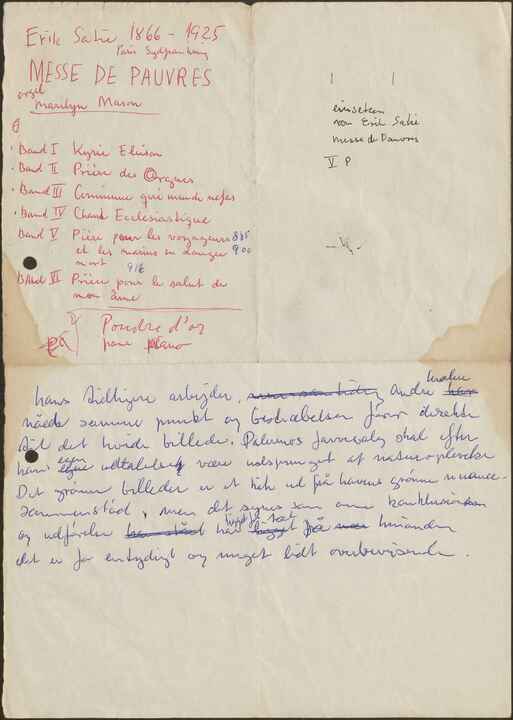 Erik Satie 1866 - 1925
Paris
MESSE DE PAUVRES
orgel
Marilyn Mason
Band I Kyrie Eleison
Band II Prière des Orgues
Band III Commune qui mundi nefas
Band IV Chant Ecclesiastique
Band V Pière pour les voyageurs 885
et les marins en danger 900
mort 916
Band VI Prière pour le salut de
mon âme
Poudre d'or
pour piano
einsetzen
von Erik Satie
Messe de Pauvres
V P
hans tidligere arbejder. Andre
nåede samme punkt og før direkte
til det hvide billede. Palermos farvevalg skal efter
hans egen udtalelse være udsprunget af naturoplevelser
Det grønne billede er et kik ud på havens grønne
men det synes som om
og udførelse har ligget for tæt på hinanden
det er for entydigt og noget lidt overbevisende.